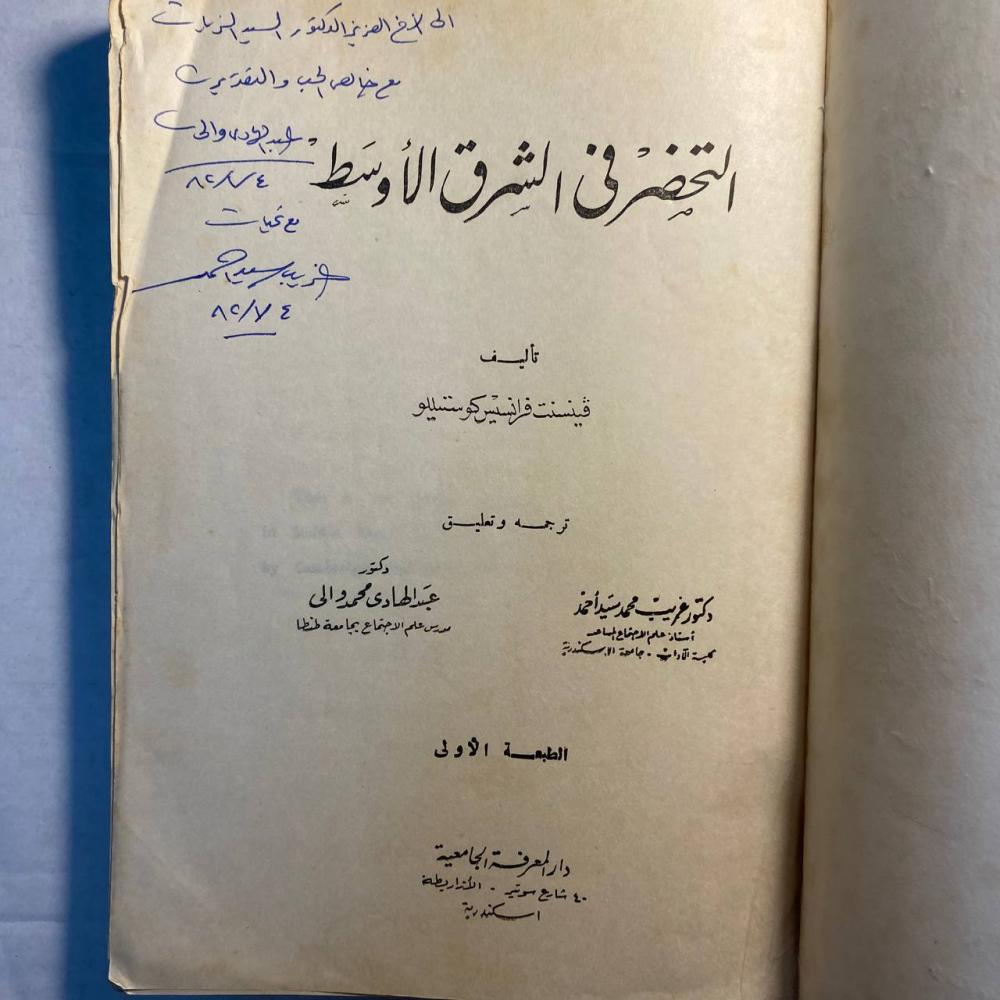 الى الأخ العزيز الدكتور السيد الزيات
مع خالص الحب والتقدير
عبد الهادى والى
٨٢/٧/٤
مع تحيات
غريب سيد احمد
٨٢/٧/٤
التحضر فى الشرق الأوسط
تأليف
ڤينسنت فرانسيس كوستيللو
ترجمه وتعليق
دكتور غريب محمد سيد أحمد
أستاذ علم الاجتماع المساعد
كلية الآداب - جامعة الاسكندرية
دكتور
عبد الهادى محمد والى
مدرس علم الاجتماع بجامعة طنطا
الطبعة الأولى
دار المعرفة الجامعية
٤٠ شارع سوتير - الأزاريطة
اسكندرية